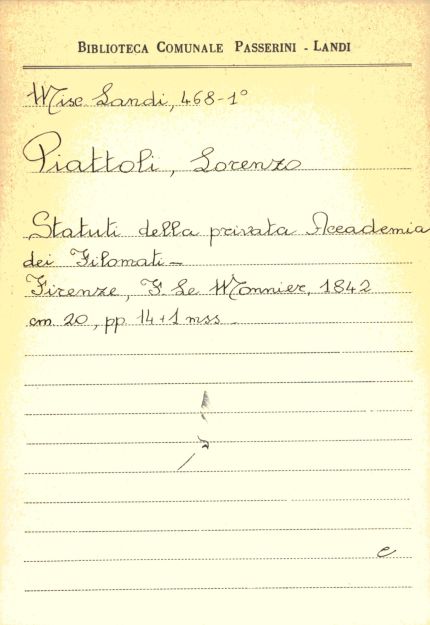 BIBLIOTECA COMUNALE PASSERINI - LANDI
Misc Landi, 468-1°
Piattoli, Lorenzo
Statuti della privata Accademia
dei Filomati -
Firenze, F. Le Monnier, 1842
cm. 20, pp. 14 + 1 mss -
e